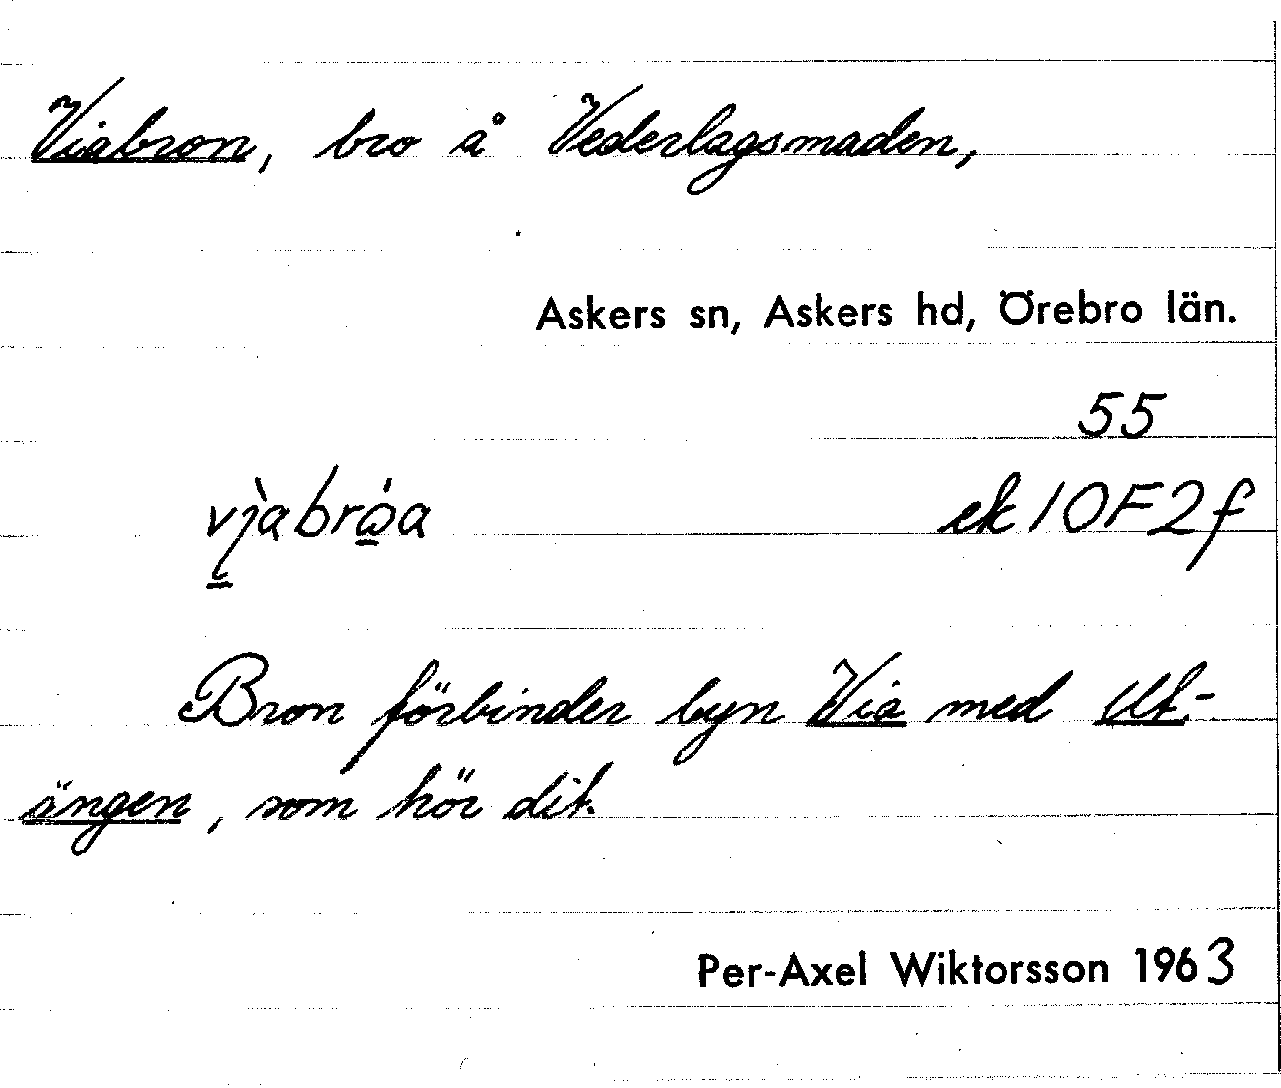 Viabron, bro å Vederlagsmaden,
Askers sn, Askers hd, Örebro län.
55
ek 10F2f
Bron förbinder byn Via med Ut-
ängen, som hör dit.
Per-Axel Wiktorsson 1963